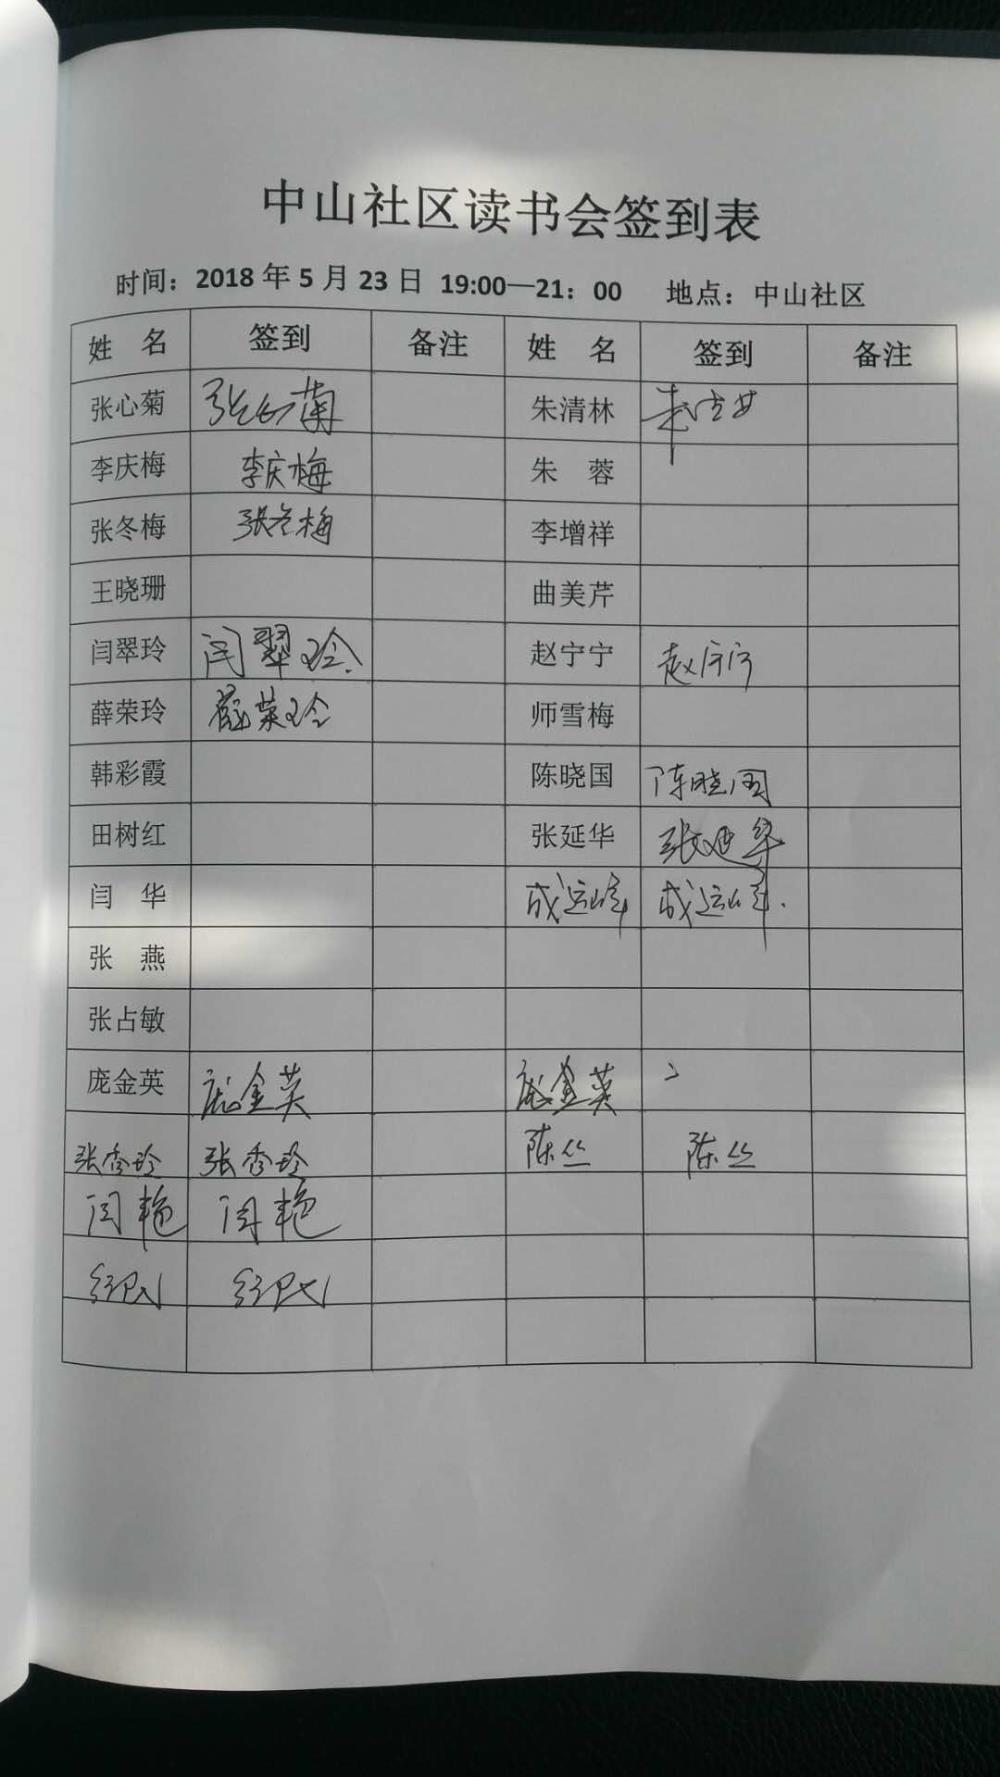 中山社区读书会签到表
时间：2018 年 5 月 23 日 19:00—21：00 地点：中山社区
姓 名 签到 备注 姓 名 签到 备注
张心菊 张心菊 朱清林
李庆梅 李庆梅 朱 蓉
张冬梅 张冬梅 李增祥
王晓珊 曲美芹
闫翠玲 闫翠玲 赵宁宁 赵宁宁
薛荣玲 薛荣玲 师雪梅
韩彩霞 陈晓国 陈晓国
田树红 张延华 张延华
闫 华 成运峰 成运峰
张 燕
张占敏
庞金英 庞金英 庞金英
张秀玲 张秀玲 陈丝 陈丝
闫艳 闫艳